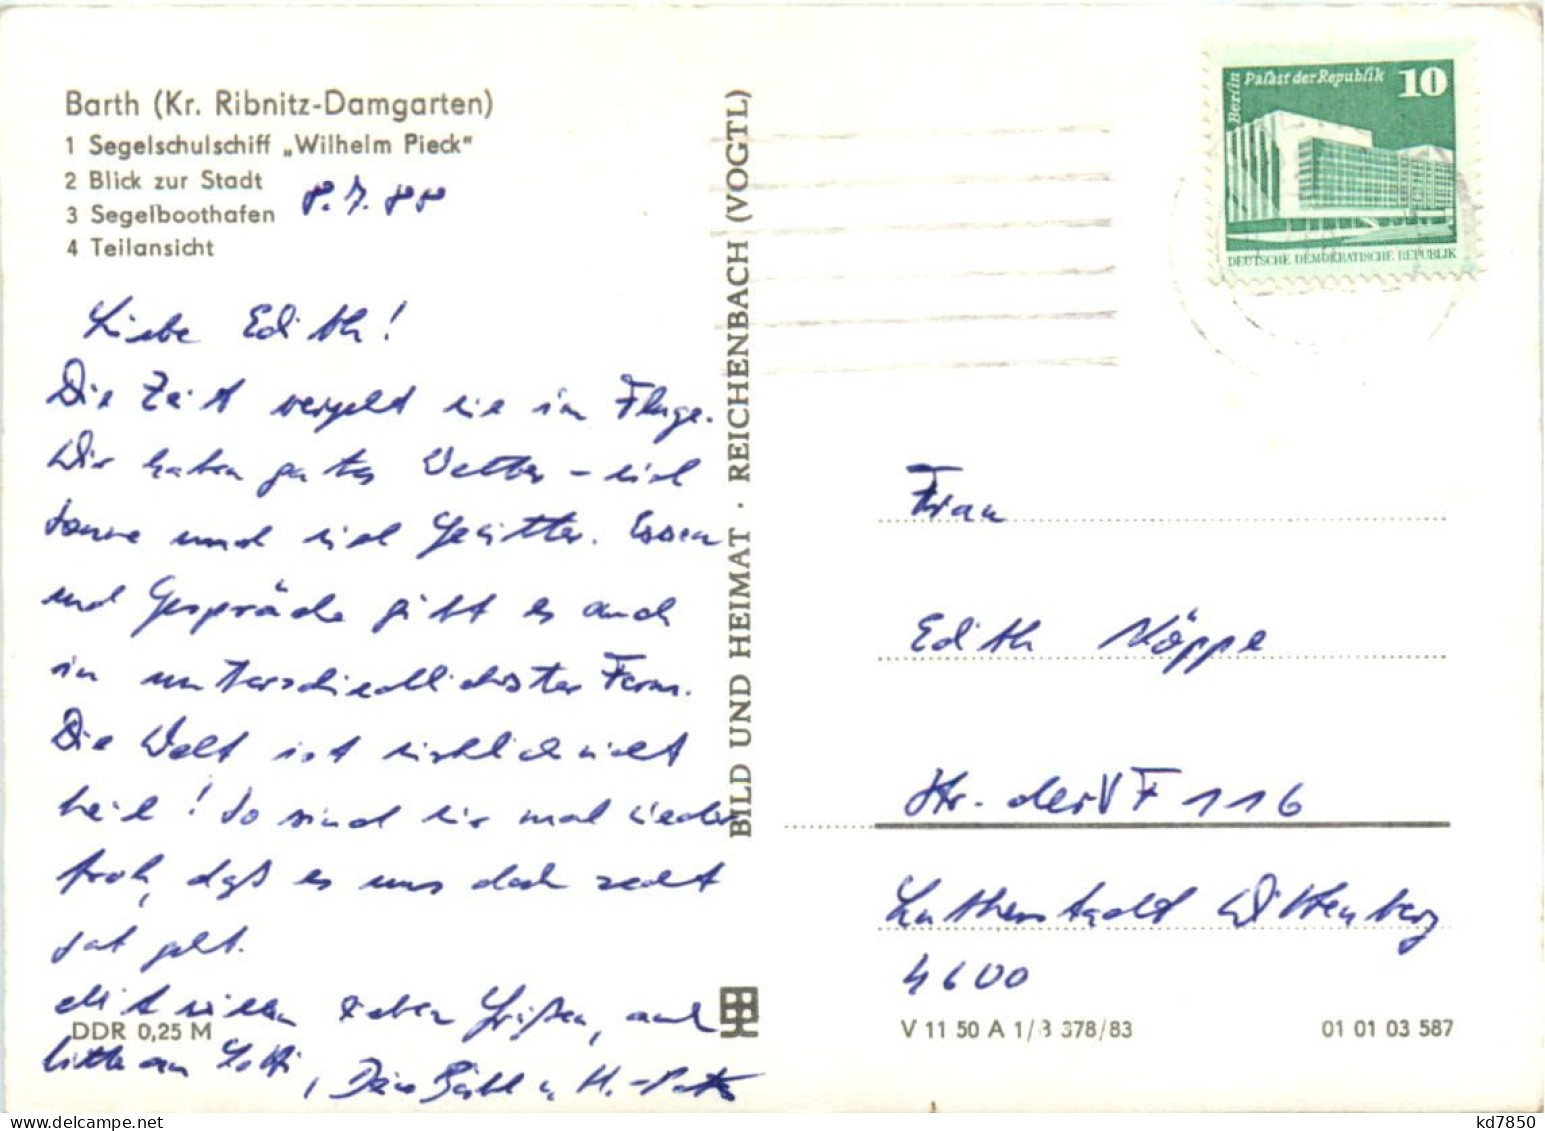 Barth (Kr. Ribnitz-Damgarten)
1 Segelschulschiff „Wilhelm Pieck"
2 Blick zur Stadt
3 Segelboothafen
4 Teilansicht
8.7.88
Liebe Edith!
Die Zeit vergeht wie im Fluge.
Wir haben gutes Wetter – viel
Sonne und viel Gewitter. Essen
und Gespräche gibt es auch
in unterschiedlichster Form.
Die Welt ist wirklich nicht
heil! So sind wir mal wieder
froh, daß es uns doch recht
gut geht.
Mit vielen lieben Grüßen, auch
bitte an Lotti,
BILD UND HEIMAT · REICHENBACH (VOGTL)
Berlin Palast der Republik 10
DEUTSCHE DEMOKRATISCHE REPUBLIK
Frau
Edith Köppe
Str. der VF 116
Lutherstadt Wittenberg
4600
DDR 0,25 M
V 11 50 A 1/B 378/83
01 01 03 587
kd7850